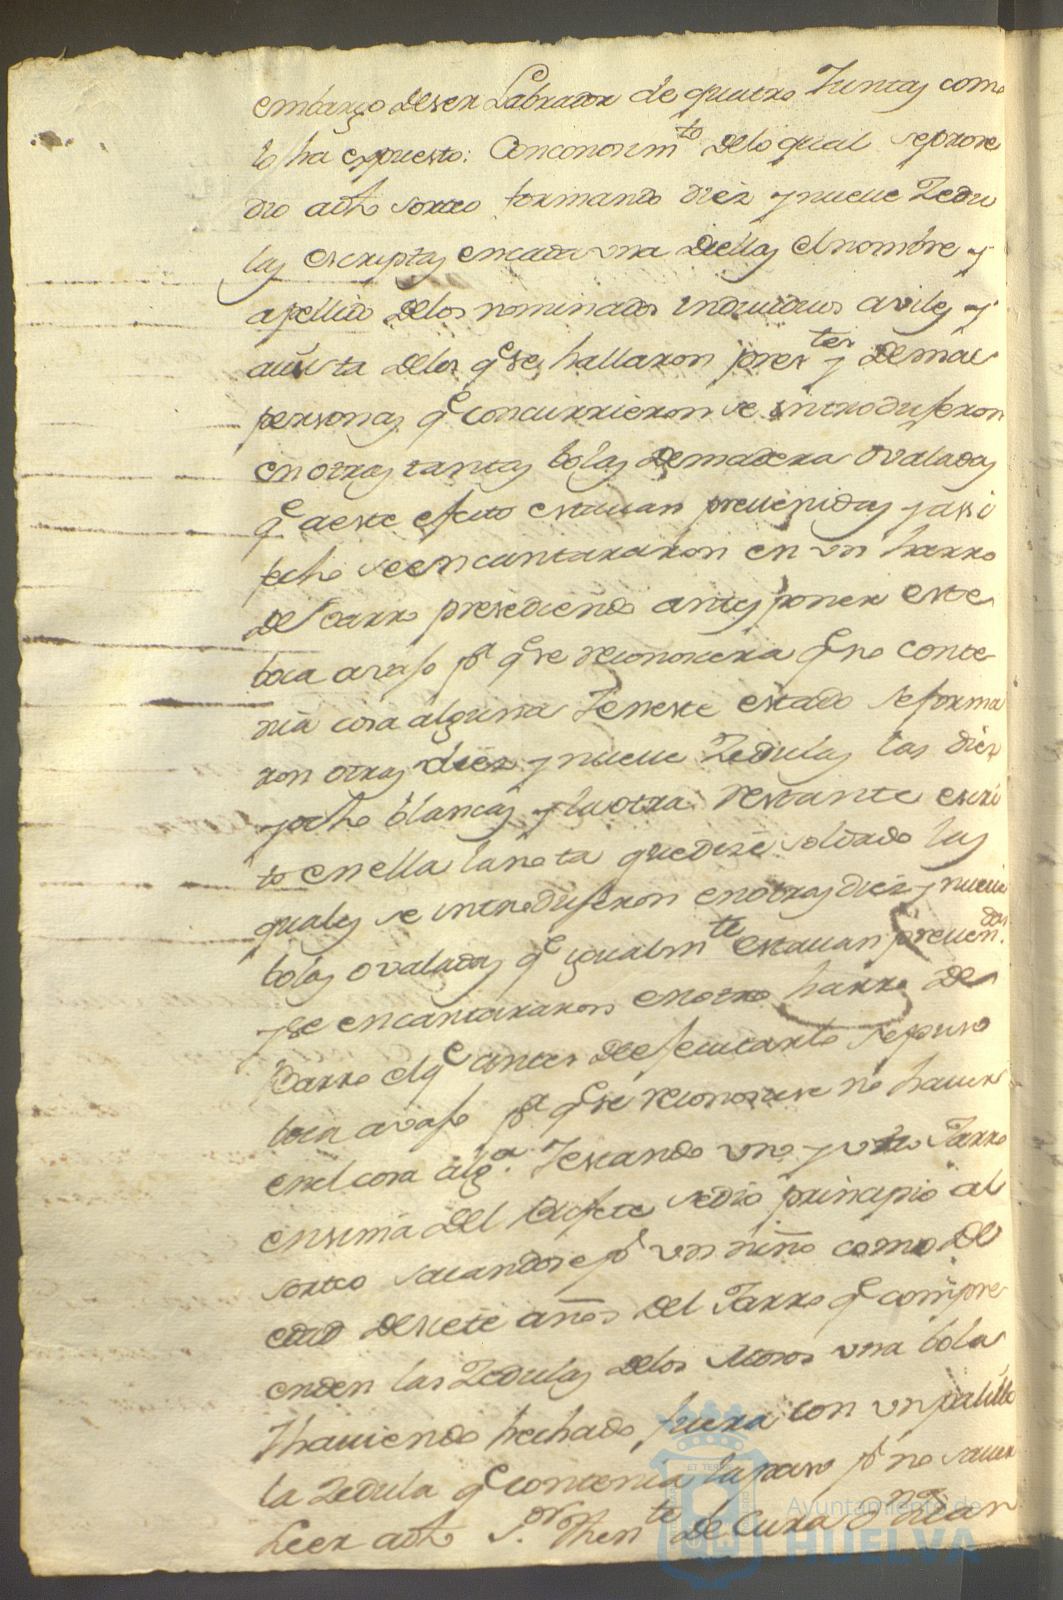 embargo deser Labrador de quatro Juntas como
lo ha expuesto: Conconosim.to delo qual seproce
dio adho sorteo formando diez y nueve Zedu
las escriptas encada una deellas elnombre y
apellido delos nominados individuos aviles y
avista delos q.e se hallaron pres.tes y demas
personas q.e concurrieron se introdujeron
en otras tantas bolas demadera ovaladas
q.e aeste efecto estavan prevenidas y assi
fecho seencantararon en un harro
de Barro presediendo antes poner este
boca avajo p.a q.e se reconociera q.e no conte
nia cosa alguna Yeneste estado seforma
ron otras diez y nueve Zedulas las diez
yocho blancas y laotra restante escri
to enella lanota quedize soldado las
quales se introdujeron enotras diez y nueve
bolas ovaladas q.e igualm.te estavan preven.das
yse encantararon enotro harro de
Barro elq.e antes deejecutarlo sepuso
boca avajo p.a q.e se reconociese no haver
enel cosa alg.a Yestando uno y otro Jarro
ensima del Bufete sedio principio al
sorteo sacandose p.r un niño como de
edad desiete años del Jarro q.e compre
enden las Zedulas delos Mozos una bola
Yhaviendo hechado fuera con un palillo
la Zedula q.e contenia lapaso p.r no saver
Leer adho S.or Then.te de Cura D.n
Ayuntamiento de
HUELVA